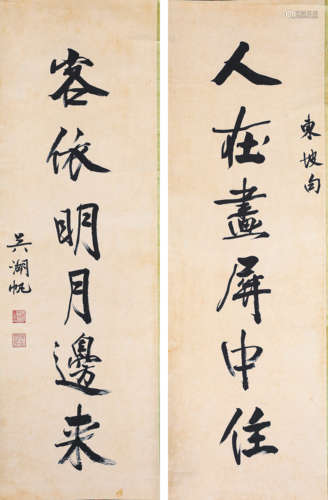 東坡句
人在畫屏中住
客依明月邊來
吳湖帆